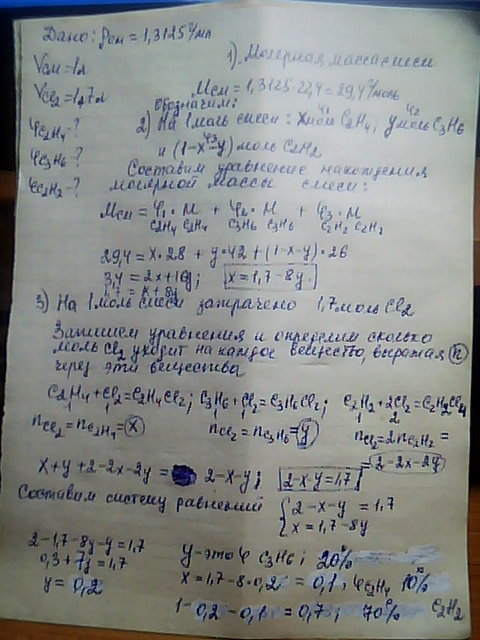 Дано: ρсм = 1,3125 г/мл
1) Молярная масса смеси
Vсм = 1л
Mсм = 1,3125·22,4 = 29,4 г/моль
VCl2 = 1,7л
Обозначим:
φC2H4-? 2) На 1 моль смеси: x моль C2H4, y моль C3H6
φ1 φ2
φC3H6-? и (1-x-y) моль C2H2
φ3
Составим уравнение нахождения
φC2H2-? молярной массы смеси:
Mсм = φ1·M + φ2·M + φ3·M
C2H4 C2H4 C3H6 C3H6 C2H2 C2H2
29,4 = x·28 + y·42 + (1-x-y)·26
3,4 = 2x+16y; x = 1,7-8y.
1,7 = x+8y
3) На 1 моль смеси затрачено 1,7 моль Cl2
Запишем уравнения и определим сколько
моль Cl2 уходит на каждое вещество, выражая n
через эти вещества
C2H4+Cl2=C2H4Cl2; C3H6+Cl2=C3H6Cl2; C2H2+2Cl2=C2H2Cl4
1 1 1 1 1 2
nCl2 = nC2H4 = x nCl2 = nC3H6 = y nCl2 = 2nC2H2 =
= 2-2x-2y
x+y+2-2x-2y = 2-x-y; 2-x-y=1,7
Составим систему уравнений { 2-x-y = 1,7
x = 1,7-8y
2-1,7-8y-y=1,7
0,3+7y=1,7 y-это φ C3H6; 20%
y = 0,2 x = 1,7-8·0,2 = 0,1, φC2H4 10%
1-0,2-0,1 = 0,7; 70% C2H2